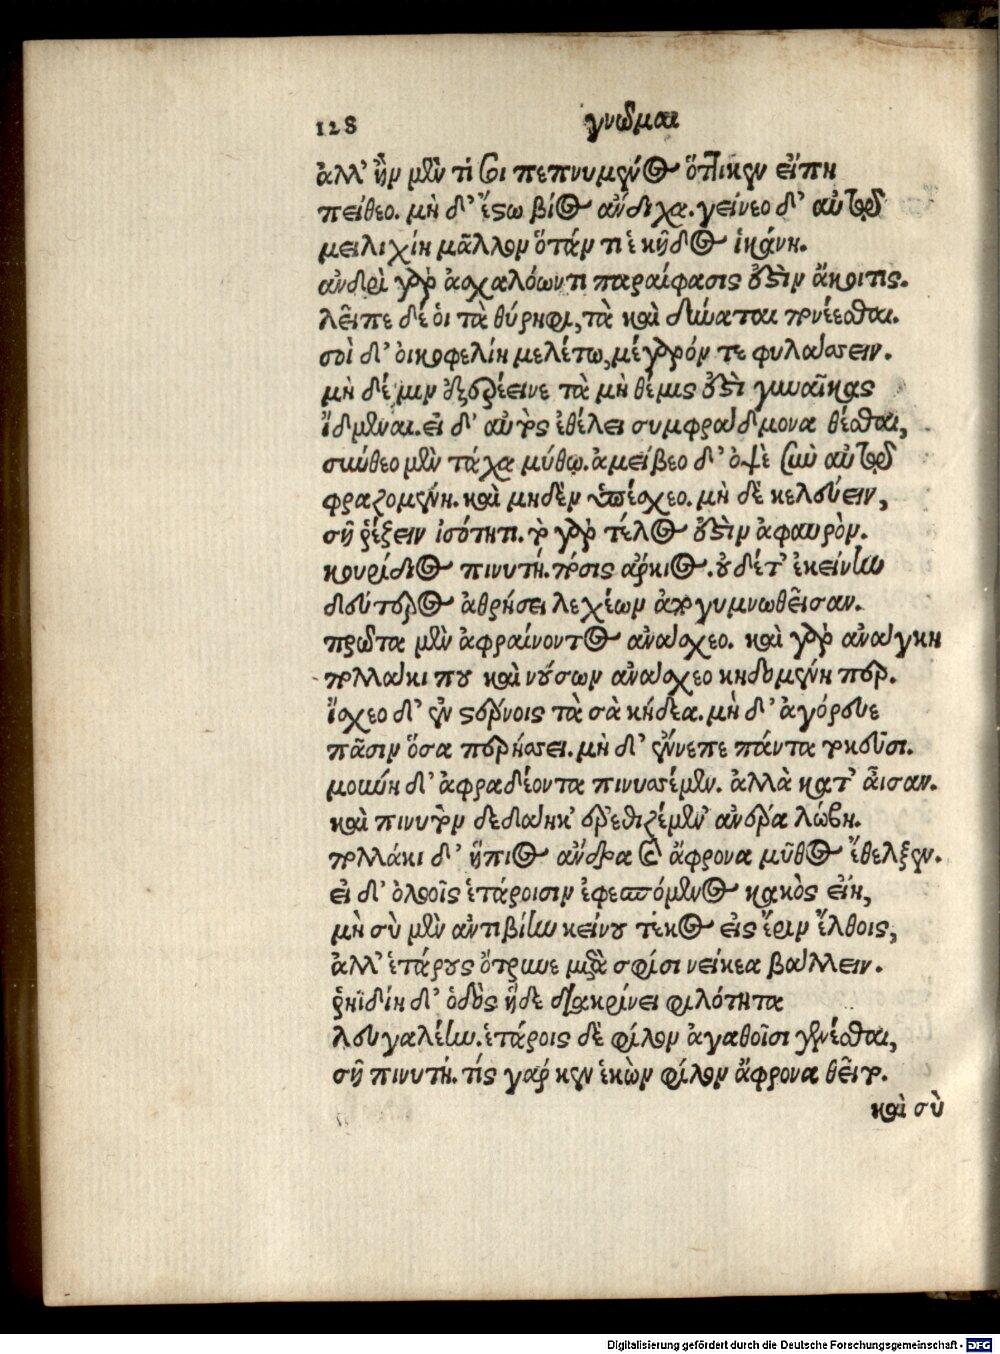 128
γνῶμαι
ἀλλ' ἢν μέν τί σοι πεπνυμένος ὅττικεν εἴπη
πείθεο. μὴ δ' ἔστω βίος ἄνδιχα. γείνεο δ' αὐτῶ
μειλιχίη μᾶλλον ὅτάν τι ἑ κῆδος ἱκάνη.
ἀνδρὶ γὰρ ἀσχαλόωντι παραίφασις ἐστὶν ἄκοιτις.
λεῖπε δέ οἱ τὰ θύρηφι, τὰ καὶ δύναται πονέεσθαι.
σοὶ δ' οἰκωφελίη μελέτω, μέγαρόν τε φυλάσσειν.
μὴ δέ μιν ἐξερέεινε τὰ μὴ θέμις ἐστὶ γυναῖκας
ἴδμεναι. εἰ δ' αὐτός ἐθέλει συμφράδμονα θέσθαι,
σκύθεο μὲν τάχα μύθῳ. ἀμείβεο δ' ὀψὲ σὺν αὐτῶ
φραζομένη. καὶ μηδὲν ὑπέσχεο. μὴ δὲ κελεύειν,
σῇ ῥέξειν ἰσότητι. τὸ γὰρ τέλος ἐστὶν ἀφαυρὸν.
κουρίδιος πινυτή. πόσις ἄρκιος. οὐδέτ' ἐκείνην
δεύτερος ἀθρήσει λεχέων ἀπογυμνωθεῖσαν.
πρῶτα μὲν ἀφραίνοντος ἀνάσχεο. καὶ γὰρ ἀνάγκη
πολλάκι που καὶ νούσων ἀνάσχεο κηδομένη περ.
ἴσχεο δ' ἐν στέρνοις τὰ σὰ κήδεα. μὴ δ' ἀγόρευε
πᾶσιν ὅσα περήσσει. μὴ δ' ἔννεπε πάντα τοκεῦσι.
μούνη δ' ἀφραδέοντα πινυσσέμεν. ἀλλὰ κατ' αἶσαν.
καὶ πινυτὸν δεδιάηκ' ἐρεθιζέμεν ἀνέρα λώβη.
πολλάκι δ' ἤπιος ἄνδρα καὶ ἄφρονα μῦθος ἔθελξεν.
εἰ δ' ὀλοοῖς ἑτάροισιν ἐφεσπόμενος κακὸς εἴη,
μὴ σὺ μὲν ἀντιβίην κείνου τέκος εἰς ἔριν ἔλθοις,
ἀλλ' ἑτάρους ὄτρυνε μετὰ σφίσι νείκεα βάλλειν.
ῥηϊδίη δ' ὁδὸς ἥδε διακρίνει φιλότητα
λευγαλέην. ἑτάροις δὲ φίλον ἀγαθοῖσι γενέσθαι,
σῇ πινυτῇ. τίς γάρ κεν ἑκὼν φίλον ἄφρονα θεῖτο.
καὶ σὺ
Digitalisierung gefördert durch die Deutsche Forschungsgemeinschaft - DFG